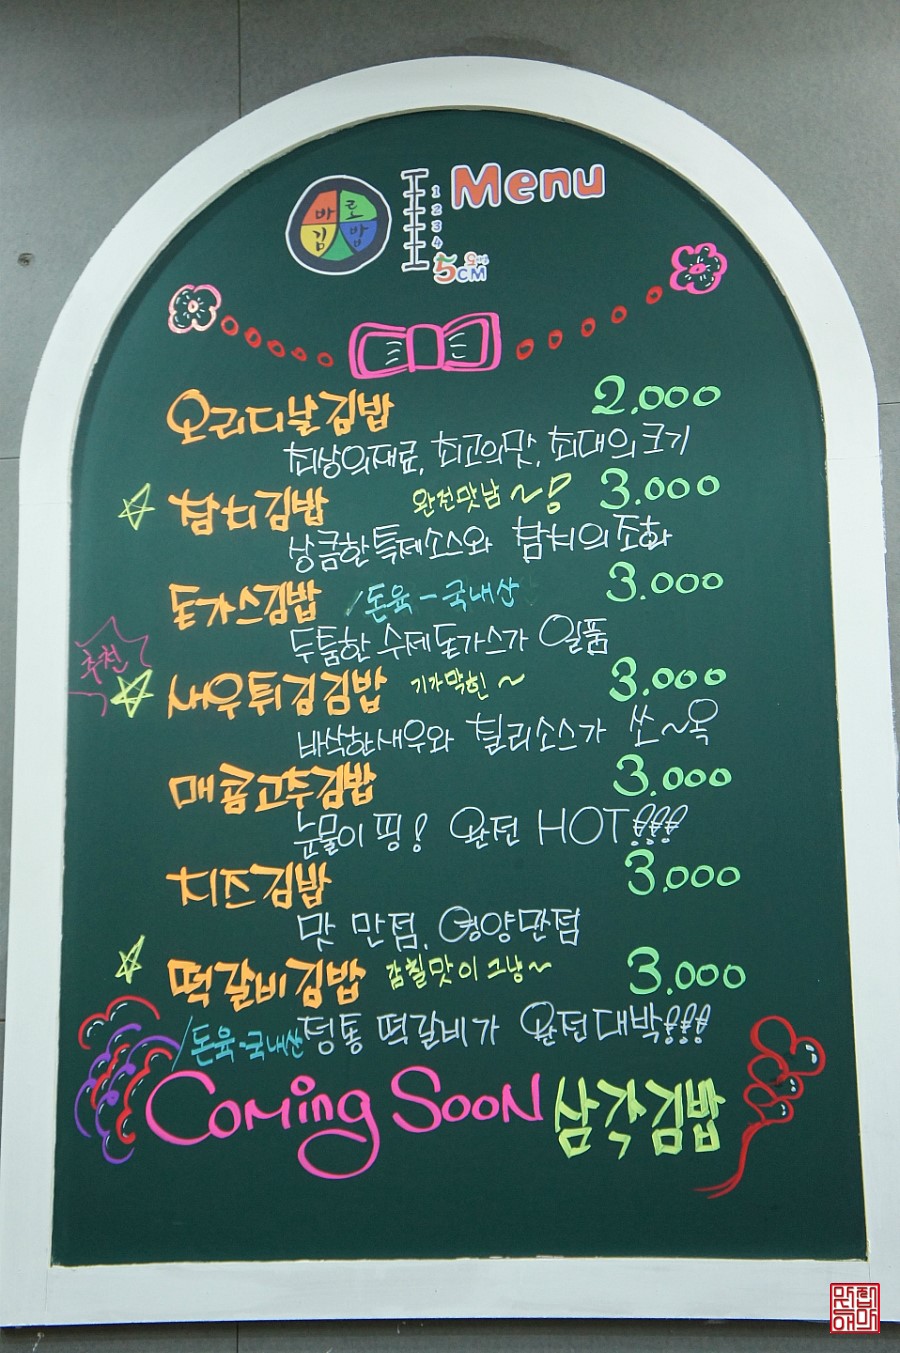 바로김밥
1
2
3
4
5CM
Menu
오리디날김밥 2,000
최상의재료, 최고의맛, 최대의크기
참치김밥 완전맛남~! 3.000
상큼한특제소스와 참치의조화
돈가스김밥 /돈육-국내산 3.000
두툼한 수제돈가스가 일품
추천
새우튀김김밥 기가막힌~ 3.000
바삭한새우와 칠리소스가 쏘~옥
매콤고추김밥 3.000
눈물이 핑! 완전 HOT!!!
치즈김밥 3.000
맛 만점, 영양만점
떡갈비김밥 감칠맛이 그냥~ 3.000
/돈육-국내산 정통 떡갈비가 완전대박!!!
Coming Soon 삼각김밥